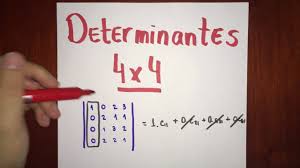 Determinantes
4x4
1 0 2 3
0 2 1 1
0 1 3 2
0 2 2 1
= 1.C₁₁ + 0.C₂₁ + 0.C₃₁ + 0.C₄₁